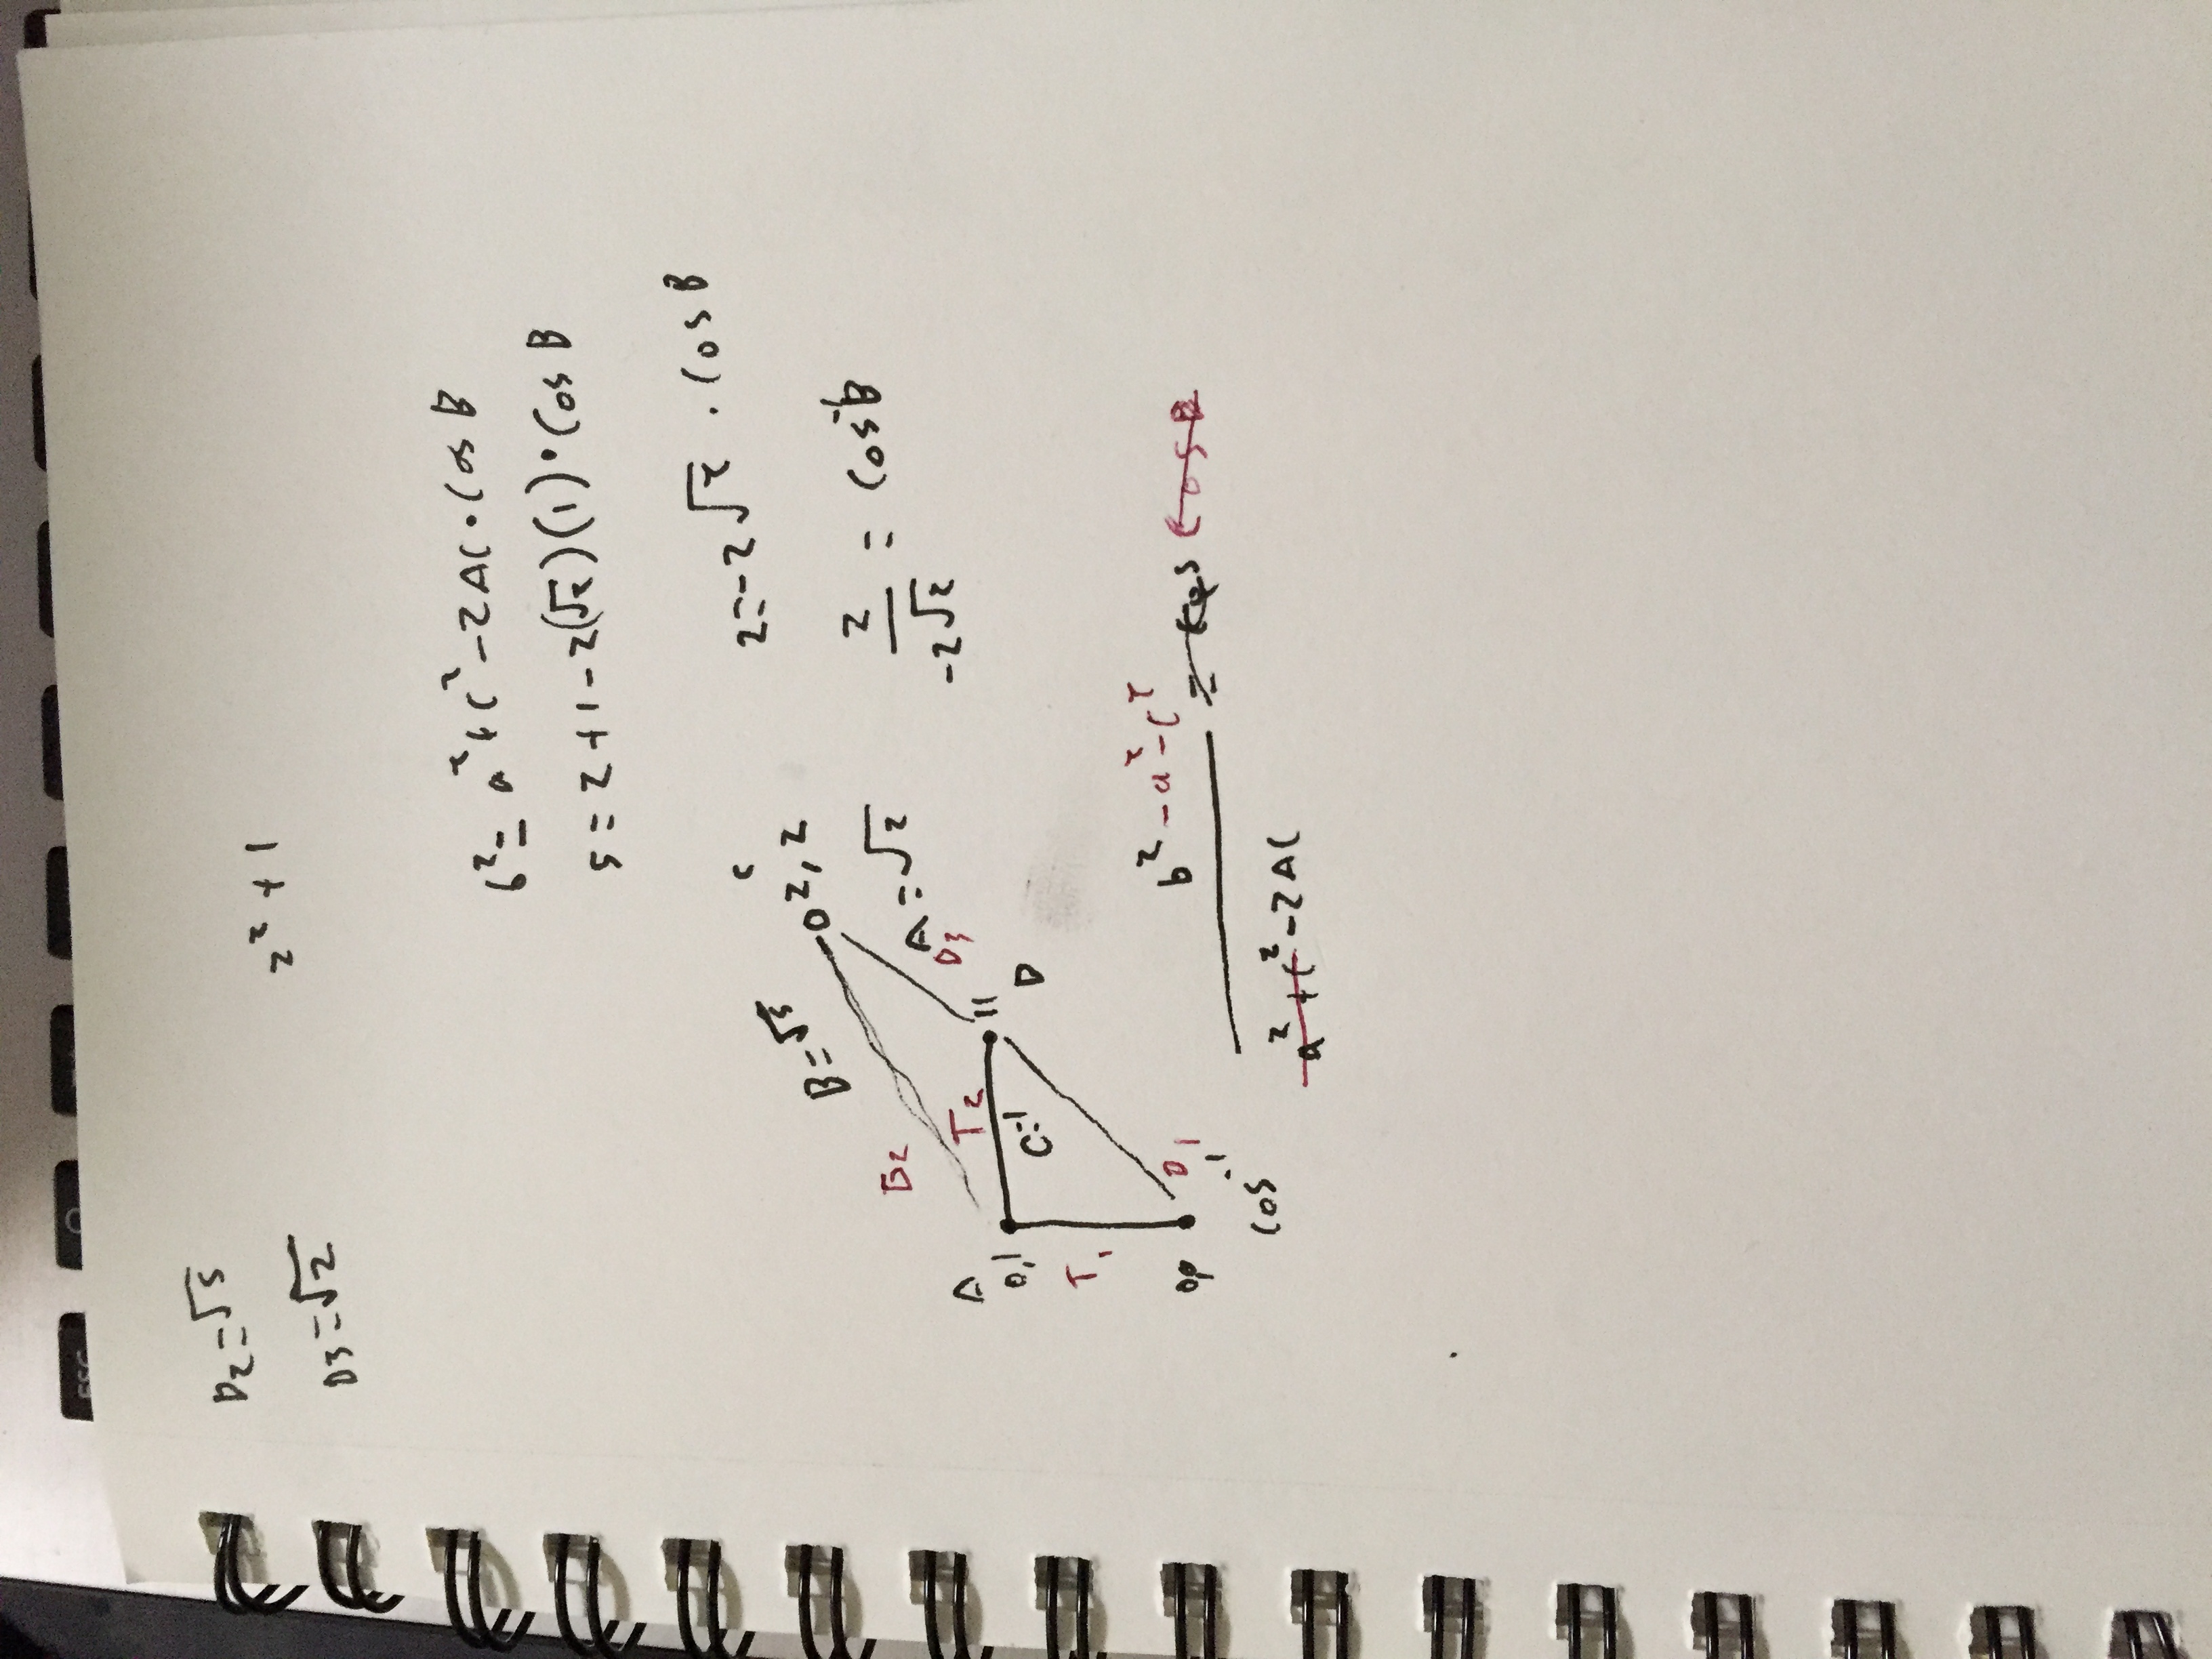 ESC
D₂=√5
z² + 1
D3=√2
b² = a² + c² - 2AC · Cos B
5 = 2 + 1 - 2(√2)(1) · Cos B
2 = -2√2 · Cos B
2/-2√2 = Cos⁻¹B
C
B=√5
2, 2
D2
A = √2
D3
A
T2
0,1
11
C=1
D
T1
0,0
D1
Cos⁻¹
b² - a² - c²
= Cos Cos B
a² + c² - 2AC